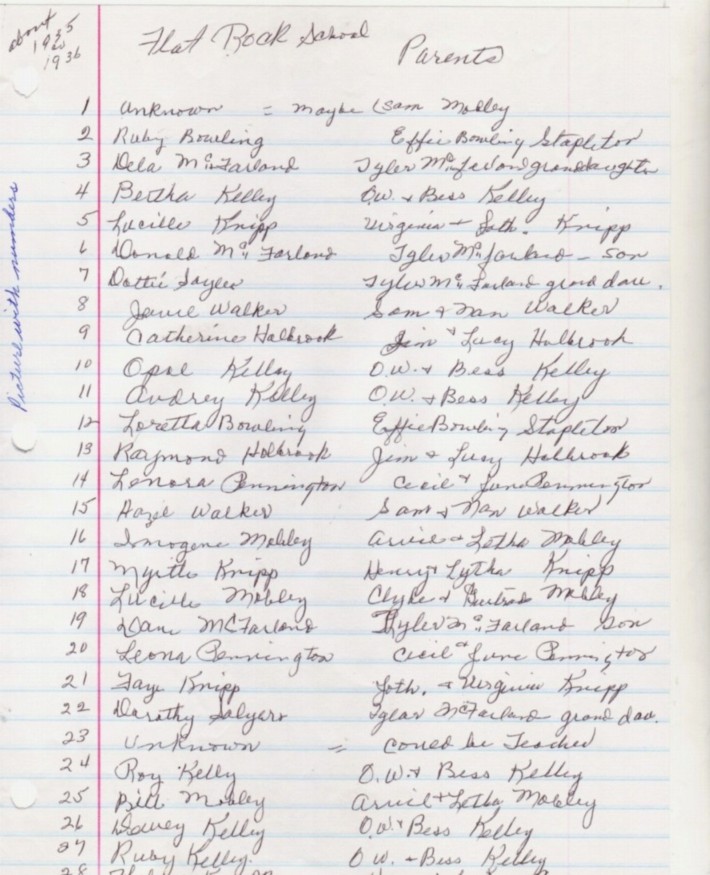 about 1935 to 1936
Flat Rock School Parents
Picture with numbers
1 Unknown = maybe (Sam Mobley
2 Ruby Bowling Effie Bowling Stapleton
3 Dela McFarland Tyler McFarland granddaughter
4 Bertha Kelley O.W. + Bess Kelley
5 Lucille Knipp Virginia + Loth. Knipp
6 Donald McFarland Tyler McFarland - son
7 Dottie Tyler McFarland grand dau.
8 Walker Sam + Nan Walker
9 Catherine Holbrook Jim + Lucy Holbrook
10 Opal Kelley O.W. + Bess Kelley
11 Audrey Kelley O.W. + Bess Kelley
12 Loretta Bowling Effie Bowling Stapleton
13 Raymond Holbrook Jim + Lucy Holbrook
14 Lenora Pennington Cecil + June Pennington
15 Hazel Walker Sam + Nan Walker
16 Imogene Mobley Arvil + Letha Mobley
17 Myrtle Knipp Henry + Lytha Knipp
18 Lucille Mobley Clyde + Mobley
19 McFarland Tyler McFarland son
20 Leona Pennington Cecil + June Pennington
21 Faye Knipp Loth. + Virginia Knipp
22 Dorothy Salyers Tyler McFarland grand dau.
23 Unknown = could be Teacher
24 Roy Kelly O.W. + Bess Kelley
25 Bill Mobley Arvil + Letha Mobley
26 Dewey Kelly O.W. + Bess Kelley
27 Ruby Kelley. O.W. + Bess Kelley
28